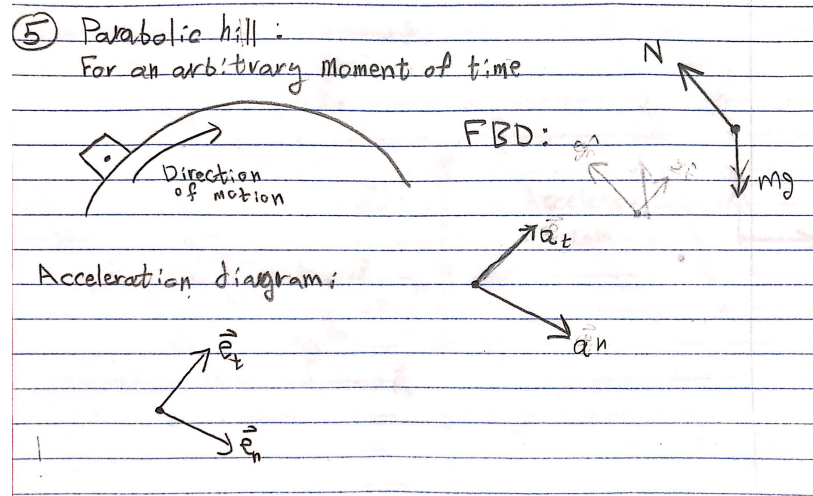 5 Parabolic hill:
For an arbitrary moment of time
N
FBD:
mg
Direction
of motion
a⃗t
Acceleration diagram:
a⃗n
e⃗t
e⃗n